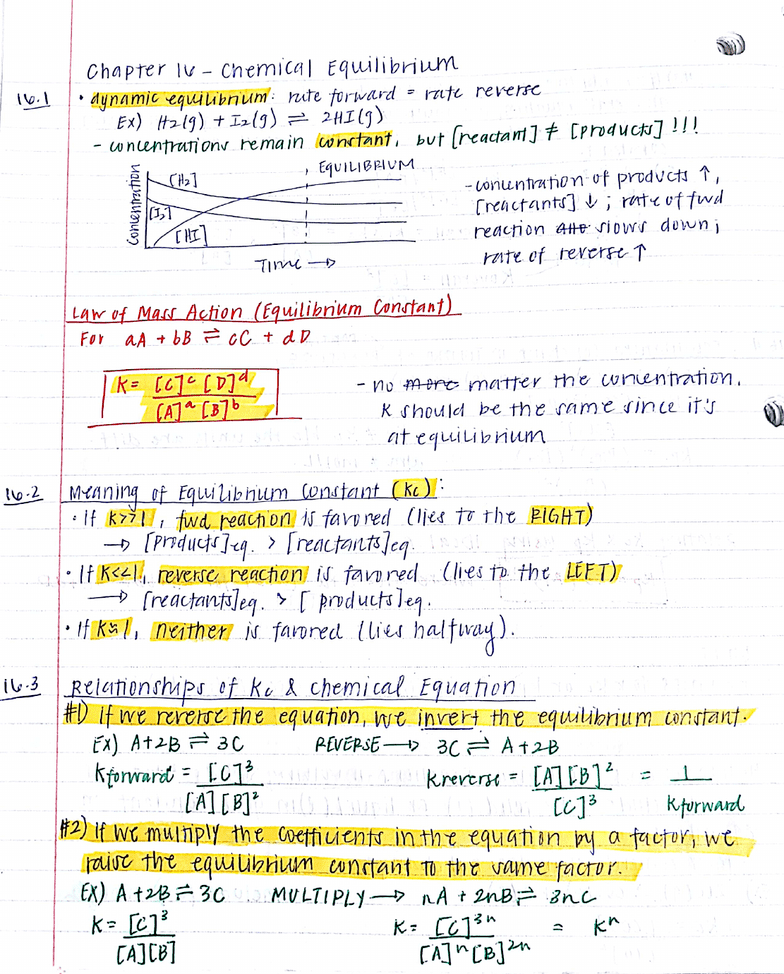 Chapter 16 - Chemical Equilibrium
16.1 • dynamic equilibrium: rate forward = rate reverse
Ex) H2(g) + I2(g) ⇌ 2HI(g)
- concentrations remain constant, but [reactant] ≠ [products] !!!
EQUILIBRIUM
Concentration
[H2]
[I2]
[HI]
Time →
- concentration of products ↑,
[reactants] ↓ ; rate of fwd
reaction slows down;
rate of reverse ↑
Law of Mass Action (Equilibrium Constant)
For aA + bB ⇌ cC + dD
K = [C]ᶜ [D]ᵈ / [A]ᵃ [B]ᵇ
- no more matter the concentration,
K should be the same since it's
at equilibrium
16.2 Meaning of Equilibrium Constant (Kc):
• If K>>1, fwd reaction is favored (lies to the RIGHT)
→ [Products]eq. > [reactants]eq.
• If K<<1, reverse reaction is favored (lies to the LEFT)
→ [reactants]eq. > [products]eq.
• If K≈1, neither is favored (lies halfway).
16.3 Relationships of Kc & chemical Equation
#1) if we reverse the equation, we invert the equilibrium constant.
Ex) A+2B ⇌ 3C REVERSE → 3C ⇌ A+2B
Kforward = [C]³ / [A][B]² Kreverse = [A][B]² / [C]³ = 1 / Kforward
#2) If we multiply the coefficients in the equation by a factor, we
raise the equilibrium constant to the same factor.
Ex) A+2B ⇌ 3C MULTIPLY → nA + 2nB ⇌ 3nC
K = [C]³ / [A][B] K = [C]³ⁿ / [A]ⁿ[B]²ⁿ = Kⁿ